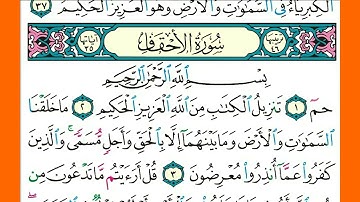 الْكِبْرِيَاءُ فِي السَّمَٰوَٰتِ وَالْأَرْضِ وَهُوَ الْعَزِيزُ الْحَكِيمُ ٣٧
ترتيبها ٤٦ سُورَةُ الْأَحْقَافِ آياتها ٣٥
بِسْمِ اللَّهِ الرَّحْمَٰنِ الرَّحِيمِ
حمٓ ١ تَنزِيلُ الْكِتَٰبِ مِنَ اللَّهِ الْعَزِيزِ الْحَكِيمِ ٢ مَا خَلَقْنَا
السَّمَٰوَٰتِ وَالْأَرْضَ وَمَا بَيْنَهُمَا إِلَّا بِالْحَقِّ وَأَجَلٍ مُّسَمًّى ۚ وَالَّذِينَ
كَفَرُوا عَمَّا أُنذِرُوا مُعْرِضُونَ ٣ قُلْ أَرَءَيْتُم مَّا تَدْعُونَ مِن